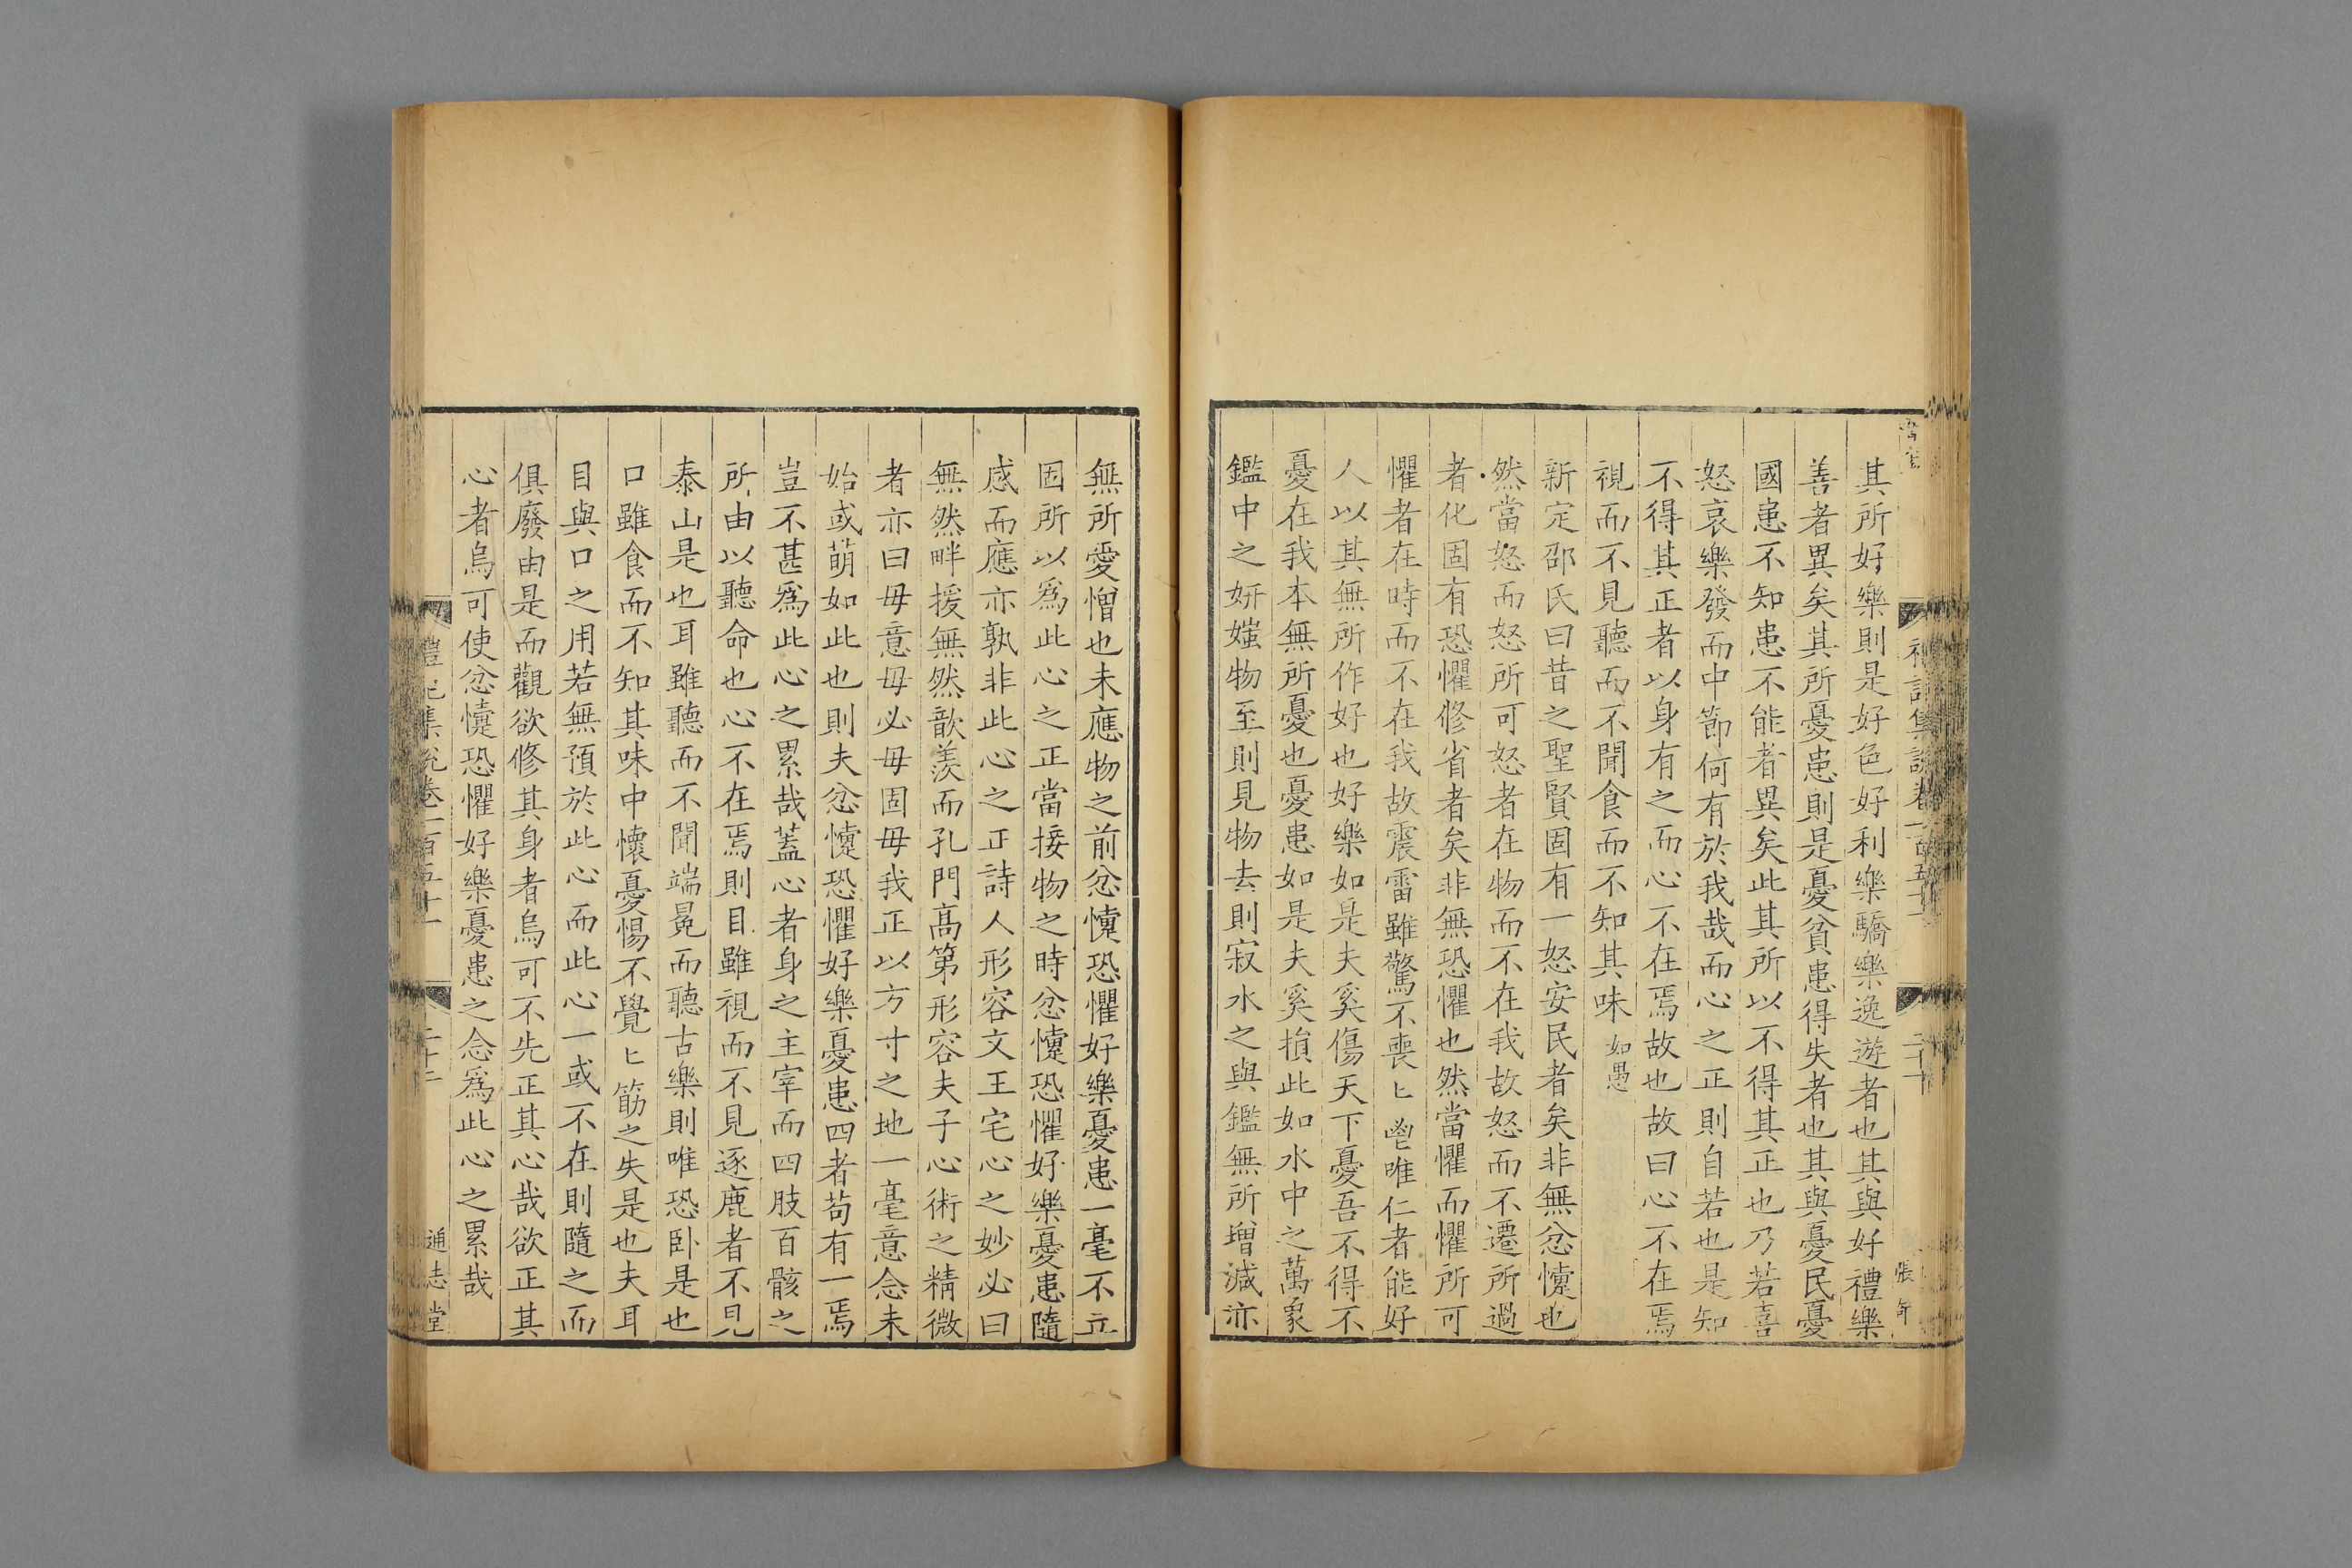 其所好樂則是好色好利樂驕樂逸遊者也其與好禮樂
善者異矣其所憂患則是憂貧患得失者也其與憂民憂
國患不知患不能者異矣此其所以不得其正也乃若喜
怒哀樂發而中節何有於我哉而心之正則自若也是知
不得其正者以身有之而心不在焉故也故曰心不在焉
視而不見聽而不聞食而不知其味如愚
新定邵氏曰昔之聖賢固有一怒安民者矣非無忿懥也
然當怒而怒所可怒者在物而不在我故怒而不遷所過
者化固有恐懼修省者矣非無恐懼也然當懼而懼所可
懼者在時而不在我故震雷雖驚不喪匕鬯唯仁者能好
人以其無所作好也好樂如是夫奚傷天下憂吾不得不
憂在我本無所憂也憂患如是夫奚損此如水中之萬象
鑑中之妍媸物至則見物去則寂水之與鑑無所增減亦
無所愛憎也未應物之前忿懥恐懼好樂憂患一毫不立
固所以為此心之正當接物之時忿懥恐懼好樂憂患隨
感而應亦孰非此心之正詩人形容文王宅心之妙必曰
無然畔援無然歆羨而孔門高第形容夫子心術之精微
者亦曰毋意毋必毋固毋我正以方寸之地一毫意念未
始或萌如此也則夫忿懥恐懼好樂憂患四者苟有一焉
豈不甚爲此心之累哉蓋心者身之主宰而四肢百骸之
所由以聽命也心不在焉則目雖視而不見逐鹿者不見
泰山是也耳雖聽而不聞端冕而聽古樂則唯恐卧是也
口雖食而不知其味中懷憂惕不覺匕筯之失是也夫耳
目與口之用若無預於此心而此心一或不在則隨之而
俱廢由是而觀欲修其身者烏可不先正其心哉欲正其
心者烏可使忿懥恐懼好樂憂患之念爲此心之累哉
禮記集說卷一百五十一
通志堂